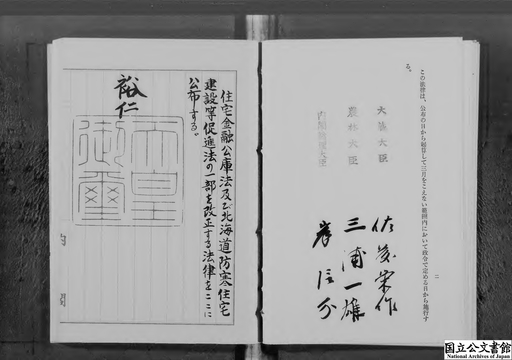 この法律は、公布の日から起算して三月をこえない範囲内において政令で定める日から施行す
る。
二
大蔵大臣
佐藤栄作
農林大臣
三浦一雄
内閣総理大臣
岸信介
住宅金融公庫法及び北海道防寒住宅
建設等促進法の一部を改正する法律をここに
公布する。
裕仁
天皇
御璽
国立公文書館
National Archives of Japan